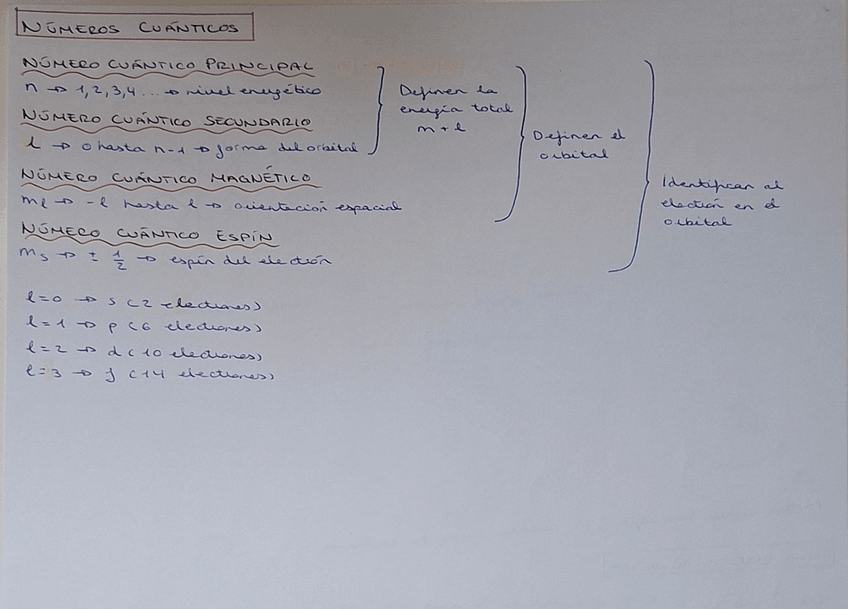 NÚMEROS CUÁNTICOS
NÚMERO CUÁNTICO PRINCIPAL
n → 1, 2, 3, 4 ... → nivel energético
NÚMERO CUÁNTICO SECUNDARIO
l → 0 hasta n-1 → forma del orbital
Definen la
energía total
n + l
NÚMERO CUÁNTICO MAGNÉTICO
ml → -l hasta l → orientación espacial
Definen el
orbital
NÚMERO CUÁNTICO ESPÍN
ms → ± 1/2 → espín del electrón
Identifican al
electrón en el
orbital
l=0 → s (2 electrones)
l=1 → p (6 electrones)
l=2 → d (10 electrones)
l=3 → f (14 electrones)